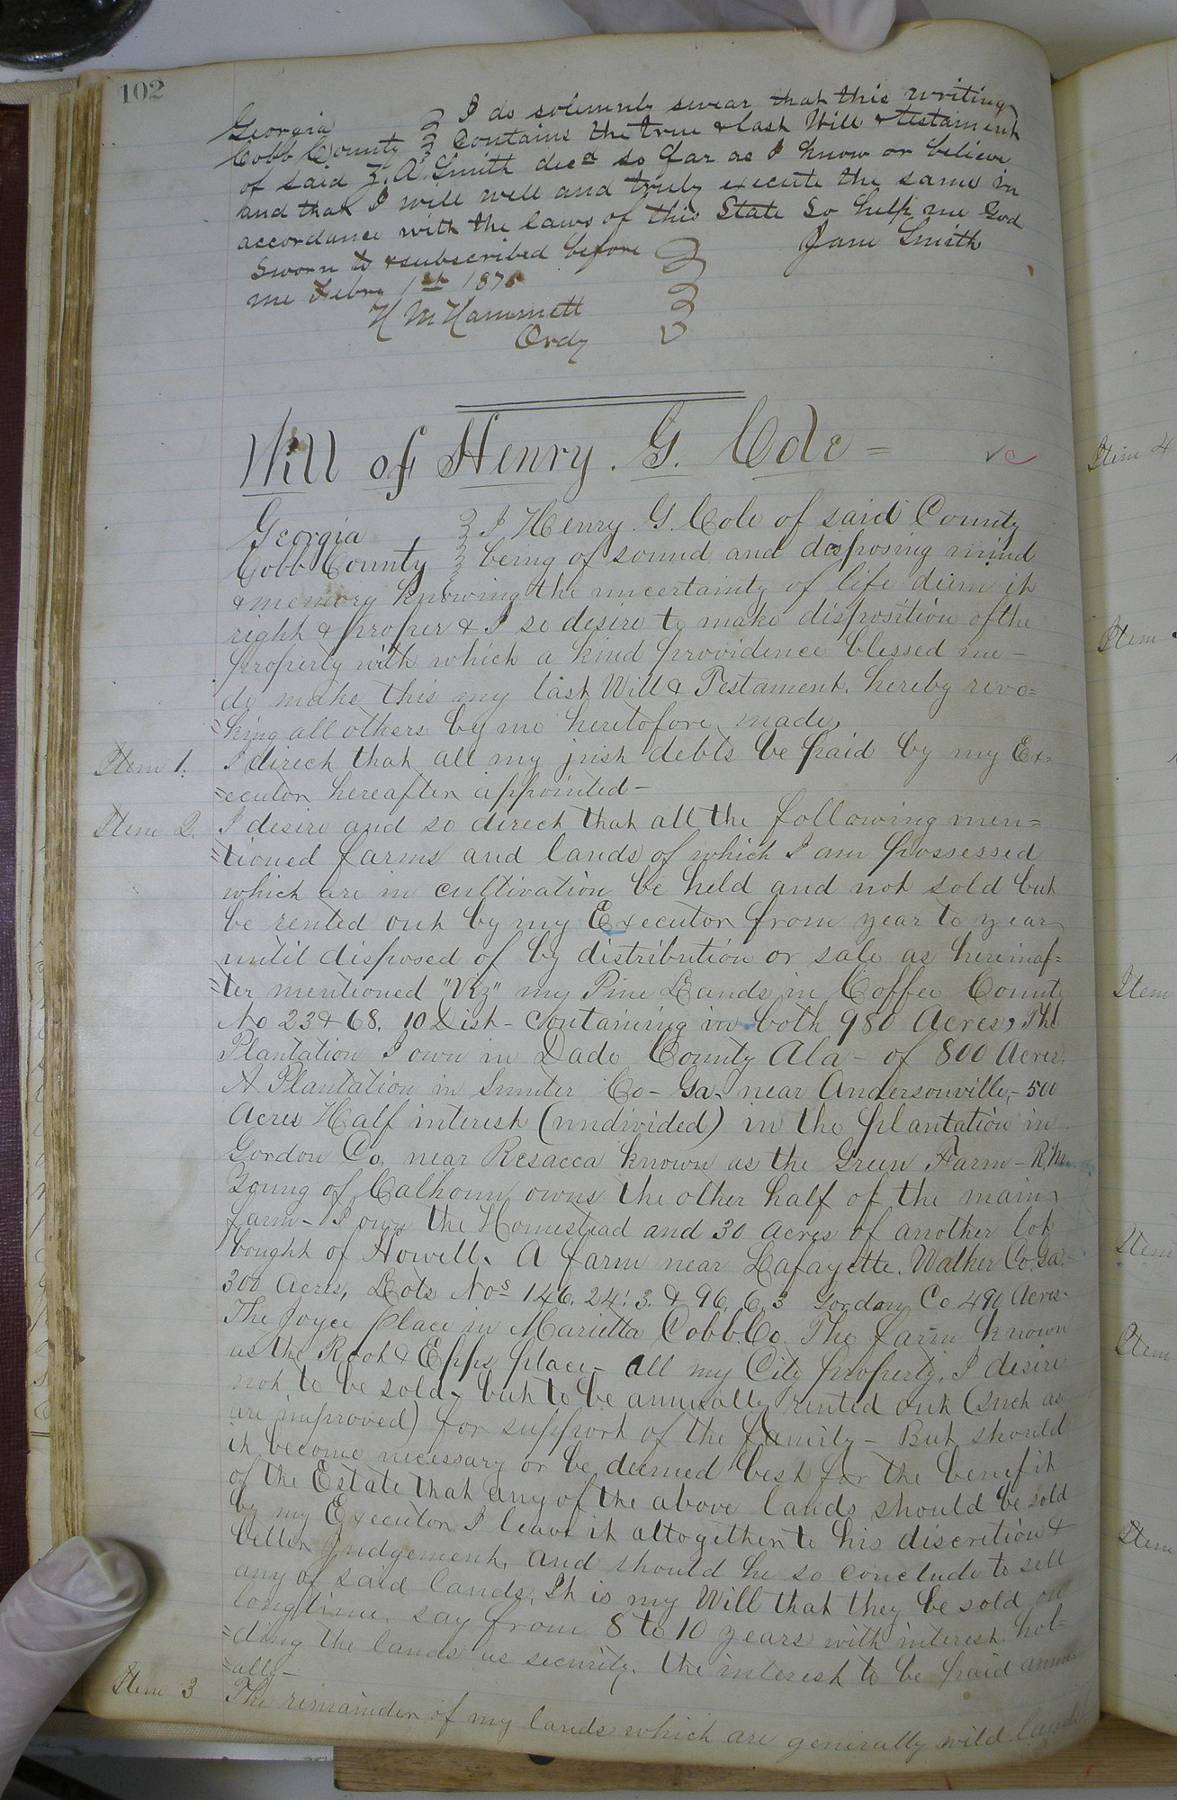 102
Georgia } I do solemnly swear that this writing
Cobb County } Contains the true & last Will & testament
of said Z. A. Smith decd so far as I know or believe
and that I will well and truly execute the same in
accordance with the laws of this State So help me God
Sworn to & subscribed before } Jane Smith
me Febry 1st 1875
H M Hammett
Ordy
Will of Henry. G. Cole =
Georgia } I Henry G. Cole of said County
Cobb County } being of sound and desposing mind
& memory knowing the uncertainty of life deem it
right & proper & I so desire to make disposition of the
property with which a kind providence blessed me -
do make this my last Will & Testament. hereby revo=
=king all others by me heretofore made,
Item 1. I direct that all my just debts be paid by my Ex=
=ecutor hereafter appointed -
Item 2. I desire and so direct that all the following men=
=tioned farms and lands of which I am possessed
which are in cultivation be held and not sold but
be rented out by my Executor from year to year
until disposed of by distribution or sale as hereinaf=
=ter mentioned "Viz" my Pine Lands in Coffee County
No 23 & 68. 10 Dist - Containing in both 980 Acres, The
Plantation I own in Dade County Ala - of 800 Acres.
A Plantation in Sumter Co - Ga. near Andersonville, - 500
Acres Half interest (undivided) in the plantation in
Gordon Co. near Resacca known as the Green Farm - R.M.
Young of Calhoun owns the other half of the main
farm - I own the Homestead and 30 acres of another lot
bought of Howell. A farm near Lafayette. Walker Co. Ga -
300 Acres, Lots Nos 146. 24. 3. & 96. 6. 3 Gordon Co 490 Acres -
The Joyce place in Marietta Cobb Co. The farm known
as the Root & Epps place - All my City property, I desire
not to be sold, but to be annually rented out (such as
are improved) for support of the family - But should
it become necessary or be deemed best for the benefit
of the Estate that any of the above lands should be sold
by my Executor I leave it altogether to his discretion &
better judgement, and should he so conclude to sell
any of said lands, It is my Will that they be sold on
long time. say from 8 to 10 years with interest. hol-
=ding the lands as security. the interest to be paid annu
=ally -
Item 3 The remainder of my lands which are generally wild lands
Item 4
Item
Item
Item
Item
Item